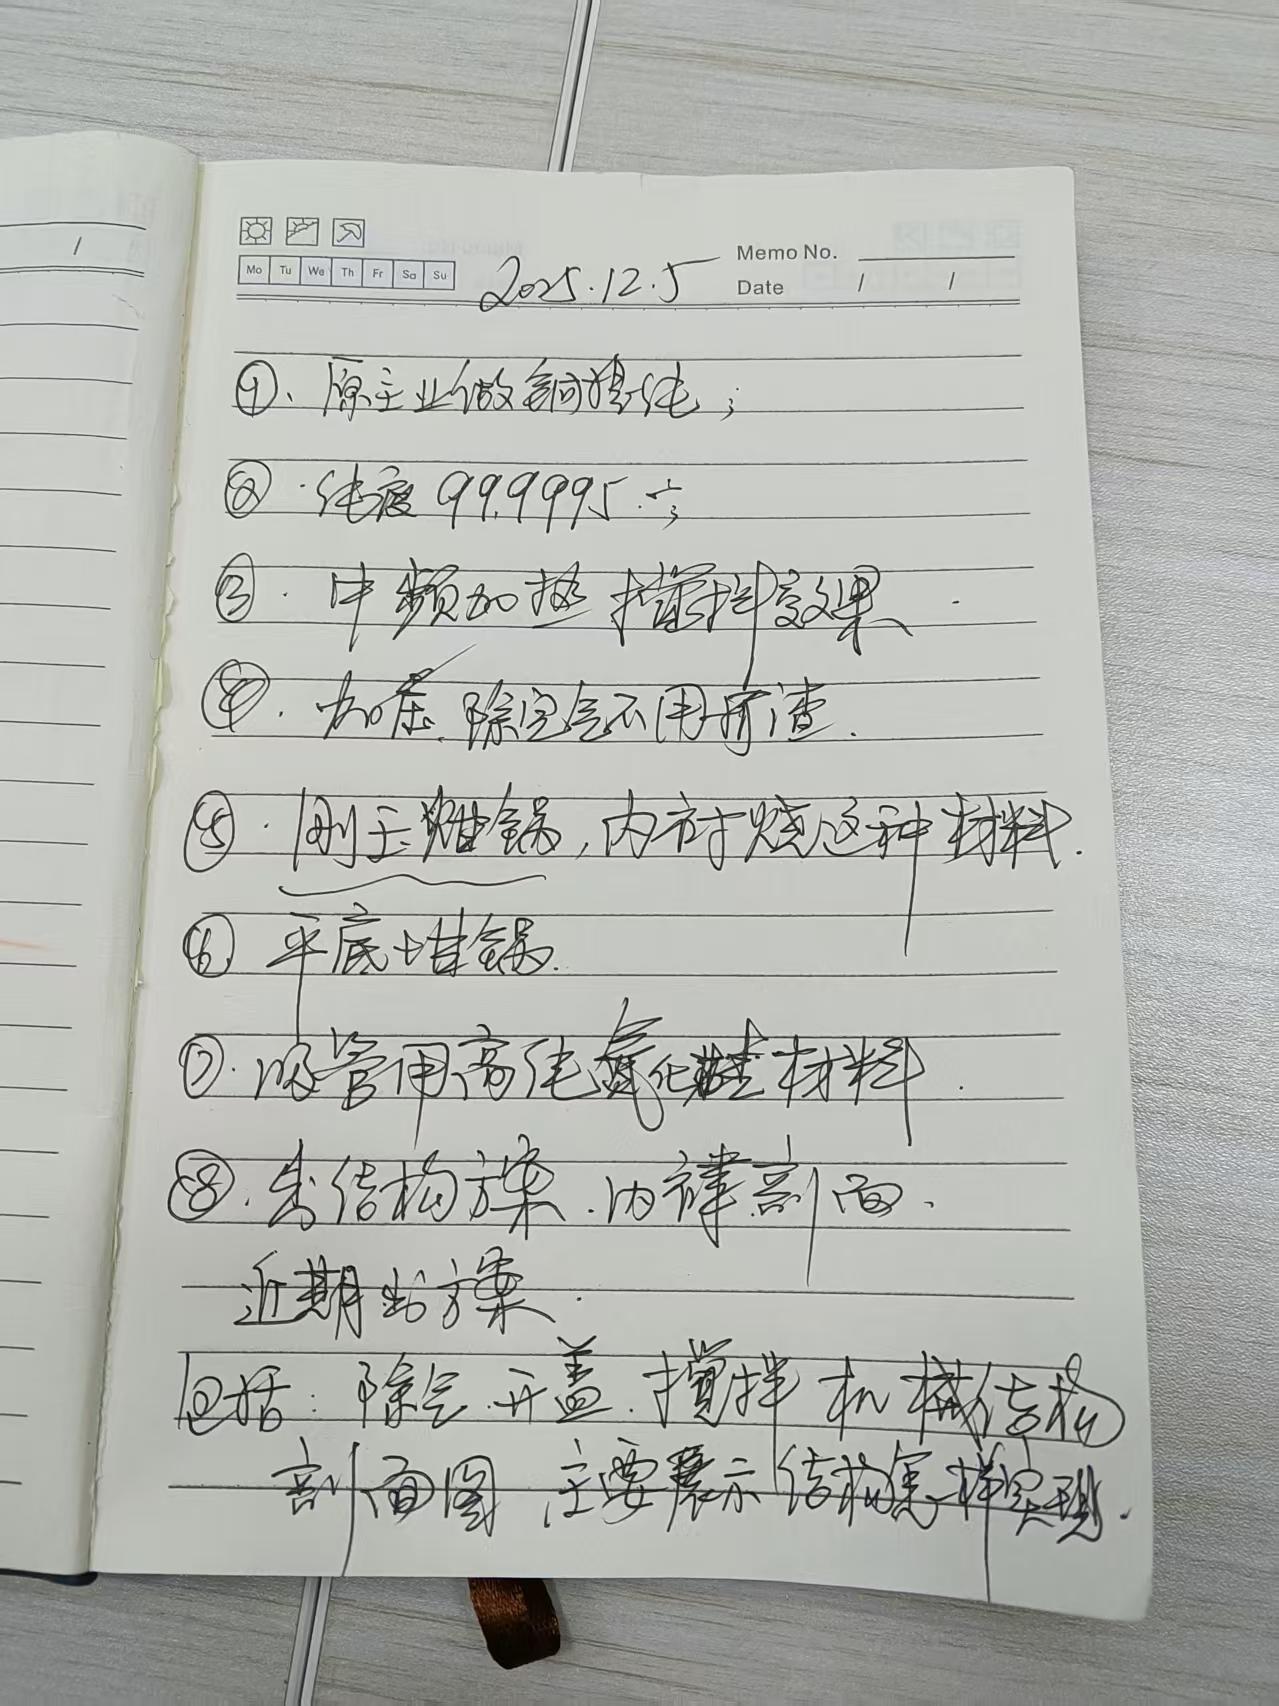 Mo Tu We Th Fr Sa Su
2025.12.5
Memo No.
Date / /
①、原主业做铜提纯；
②.纯度99.9995.
③.中频加热搅拌效果.
④.加 除 气不用 渣.
⑤.刚玉堆锅,内衬烧这种材料.
⑥平底堆锅.
⑦.吸管用高纯氮化硅材料.
⑧.出结构方案.内 剖面.
近期出方案.
包括:除气.开盖.搅拌机械结构
剖面图 主要展示结构怎样实现.
/